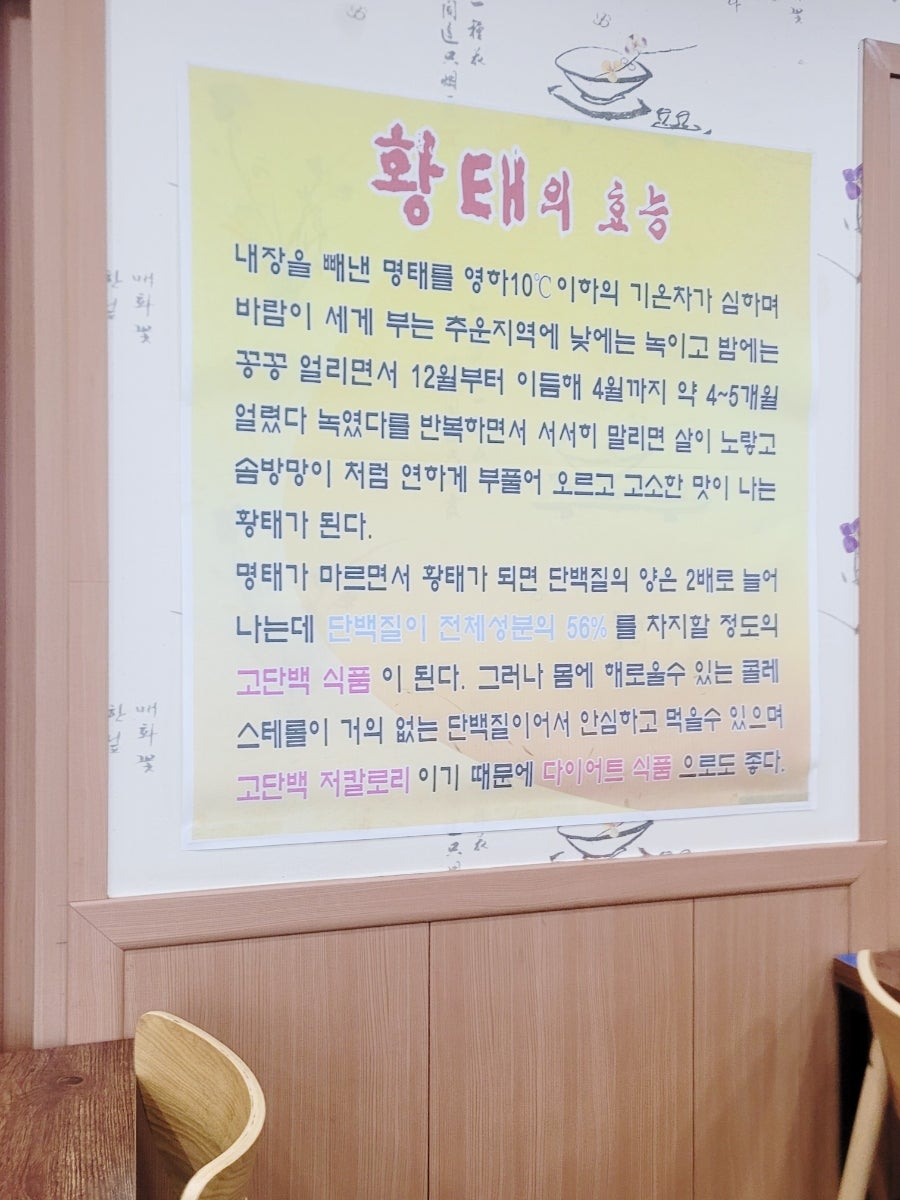 황태의 효능
내장을 빼낸 명태를 영하10℃이하의 기온차가 심하며
바람이 세게 부는 추운지역에 낮에는 녹이고 밤에는
꽁꽁 얼리면서 12월부터 이듬해 4월까지 약 4~5개월
얼렸다 녹였다를 반복하면서 서서히 말리면 살이 노랗고
솜방망이 처럼 연하게 부풀어 오르고 고소한 맛이 나는
황태가 된다.
명태가 마르면서 황태가 되면 단백질의 양은 2배로 늘어
나는데 단백질이 전체성분의 56% 를 차지할 정도의
고단백 식품 이 된다. 그러나 몸에 해로울수 있는 콜레
스테롤이 거의 없는 단백질이어서 안심하고 먹을수 있으며
고단백 저칼로리 이기 때문에 다이어트 식품 으로도 좋다.
매화꽃
매화꽃